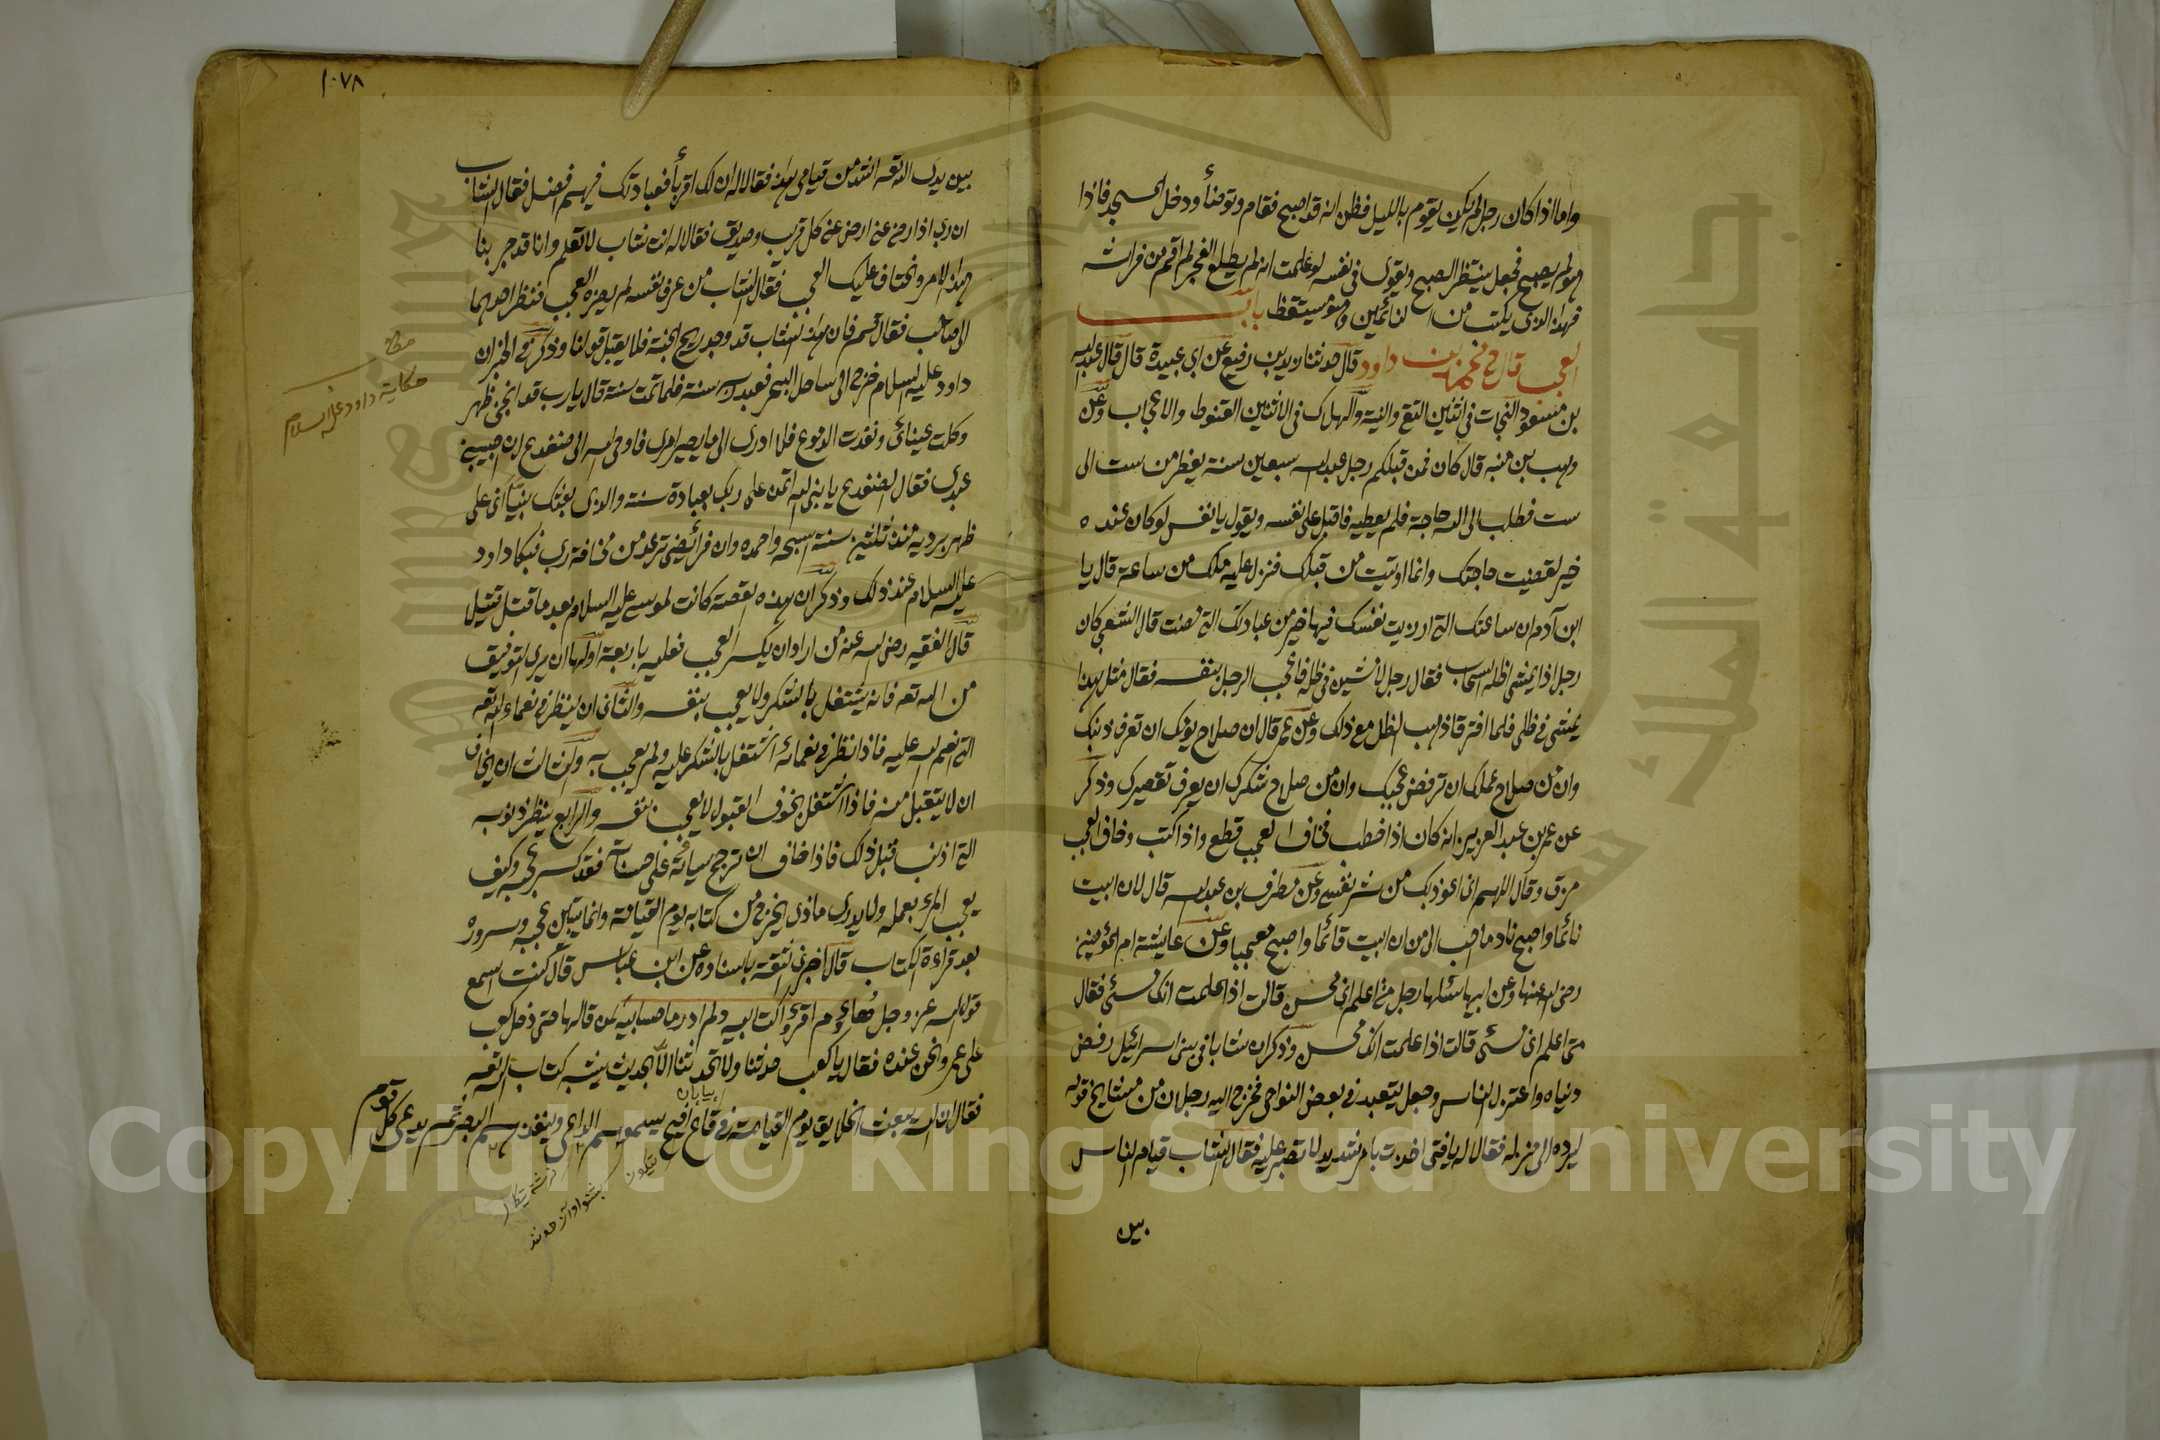 واما اذا كان رجل لم يكن يقوم بالليل فظن انه قد اصبح فقام وتوضأ ودخل المسجد فاذا
هو لم يصبح فجعل ينتظر الصبح ويقول فى نفسه لو علمت انه لم يطلع الفجر لم اقم من فراشه
فهذا الذى يكتب من النائمين وهو مستيقظ باب
العجب قال ح محمد بن داود قال حدثنا زيد بن رفيع عن ابى عبيدة قال قال عبد الله
بن مسعود النجات فى اثنين التقى والنية والهلاك فى الاثنين القنوط والاعجاب وعن
وهب بن منبه قال كان فمن قبلكم رجل عبد الله سبعين سنة يفطر من ست الى
ست فطلب الى الله حاجة فلم يعطيه فاقبل على نفسه ويقول يا نفس لو كان عنده
خير لقضيت حاجتك وانما اوتيت من قبلك فنزل عليه ملك من ساعة قال يا
ابن آدم ان ساعتك التى ازريت نفسك فيها خير من عبادتك التى مضت قال الشعبى كان
رجل اذا يمشى اظله السحاب فقال رجل لامشين فى ظله فاعجب الرجل بنفسه فقال مثل هذا
يمشى فى ظلى فلما افترقا ذهب الظل مع ذلك وعن عمر قال ان صلاح توبتك ان تعرف ذنبك
وان من صلاح عملك ان ترفض عجبك وان من صلاح شكرك ان يعرف تقصيرك وذكر
عن عمر بن عبد العزيز انه كان اذا خطب فخاف العجب قطع واذا كتب وخاف العجب
مزق وقال اللهم انى اعوذ بك من شر نفسى وعن مطرف بن عبد الله قال لان ابيت
نائما واصبح نادما احب الى من ان ابيت قائما واصبح معجبا وعن عايشة ام المؤمنين
رضى الله عنها وعن ابيها سئلها رجل متى اعلم انى محسن قالت اذا علمت انك مسئ فقال
متى اعلم انى مسئ قالت اذا علمت انك محسن وذكر ان شابا فى بنى اسرائيل رفض
دنياه واعتزل الناس وجعل يتعبد فى بعض النواحى فخرج اليه رجلان من مشايخ قومه
ليرده الى منزله فقالا له يا فتى اخذت بامر شديد لا تصبر عليه فقال الشاب قيام الناس
بين
١٠٧٨
بين يدى الله تعه اشد من قيامى هذا فقالا له ان لك اقرباء فعبادتك فيهم افضل فقال الشاب
ان ربى اذا رضى عنى ارض عنى كل قريب وصديق فقالا له انت شاب لا تعلم وانا قد جربنا
هذا الامر ونخاف عليك العجب فقال الشاب من عرف نفسه لم يضره العجب فنظر احدهما
الى صاحبه فقال قم فان هذا الشاب قد وجد ريح الجنة فلا يقبل قولنا وذكر فى الخبر ان
داود عليه السلام خرج الى ساحل البحر فعبد ربه سنة فلما تمت سنة قال يا رب قد انحنى ظهر
وكلت عيناى ونفدت الدموع فلا ادرى الى ما يصير امرى فاوحى الله الى ضفدع ان اجيبى
عبدى فقال الضفدع يا نبى الله اتمن على ربك بعبادة سنة والذى بعثك نبيا انى على
ظهر بردية منذ ثلثين سنة اسبحه واحمده وان فرائصى ترعد من مخافة ربى فبكا داود
عليه السلام عند ذلك وذكر ان هذه القصة كانت لموسى عليه السلام بعد ما قتل قتيل
قال الفقيه رضى الله عنه من اراد ان يكسر العجب فعليه باربعة اولها ان يرى التوفيق
من الله تعه فانه يشتغل بالشكر ولا يعجب بنفسه والثانى ان ينظر فى نعماء الله تعه
التى انعم الله عليه فاذا نظر فى نعمائه اشتغل بالشكر عليه ولم يعجب به والثالث ان يخاف
ان لا يتقبل منه فاذا اشتغل بخوف القبول لا يعجب بنفسه والرابع ينظر ذنوبه
التى اذنب قبل ذلك فاذا خاف ان ترجح سيأته على حسناته فقد كسر عجبه وكيف
يعجب المرء بعمله ولا يدرى ماذى يخرج من كتابه يوم القيامة وانما يتبين عجبه وسروره
بعد قراءة الكتاب قال اخبرنى الثقة باسناده عن ابن عباس قال كنت اسمع
قول الله عز وجل هاؤم اقرؤا كتابيه ولم ادر ما حسابيه لمن قالها حتى دخل كعب
على عمر ونحن عنده فقال يا كعب حدثنا ولا تحدثنا الا بحديث يشبه كتاب الله تعه
فقال ان الله يبعث الخلايق يوم القيامة فى قاع افيح يسمعوهم الداعى وينفذهم البصر ثم يدعى كل قوم
بيابان
حكاية داود عليه السلام